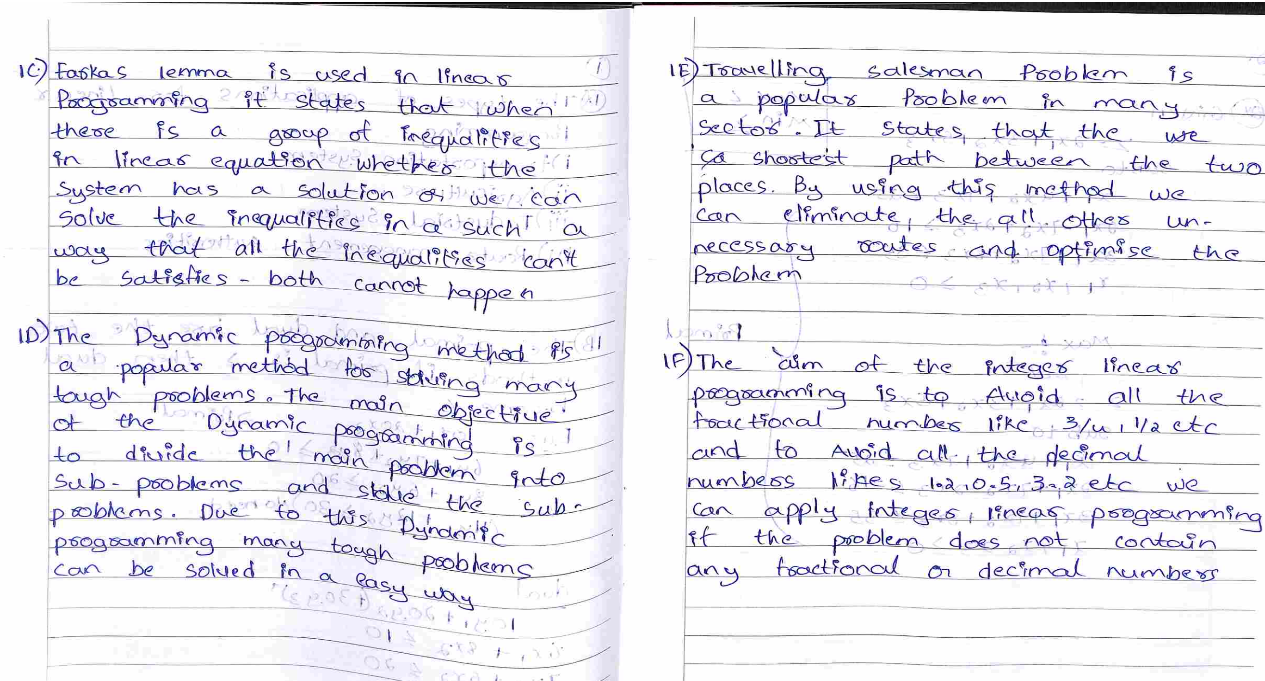 1C) Farkas lemma is used in linear
Programming it states that when
there is a group of inequalities
in linear equation whether the
System has a solution or we can
Solve the inequalities in a such a
way that all the inequalities can't
be satisfies - both cannot happen
1D) The Dynamic programming method is
a popular method for solving many
tough problems. The main objective
of the Dynamic programming is
to divide the main problem into
Sub-problems and solve the sub-
problems. Due to this Dynamic
programming many tough problems
can be solved in a easy way
1E) Travelling salesman Problem is
a popular Problem in many
sector. It states that the we
shortest path between the two
places. By using this method we
can eliminate the all other un-
necessary routes and optimise the
Problem
1F) The aim of the integer linear
programming is to Avoid all the
fractional number like 3/4, 1/2 etc
and to Avoid all the decimal
numbers likes 1.2, 0.5, 3.2 etc we
can apply integer linear programming
if the problem does not contain
any fractional or decimal numbers